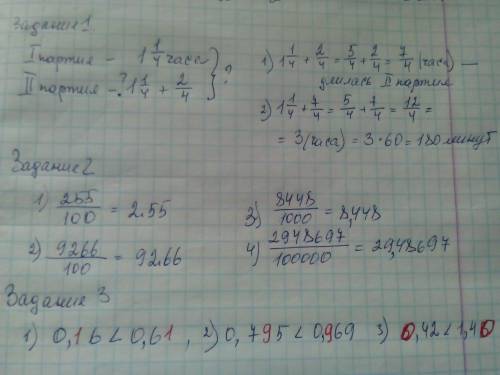 Задание 1
I партия - 1 1/4 часа
II партия - ? 1 1/4 + 2/4 } ?
1) 1 1/4 + 2/4 = 5/4 + 2/4 = 7/4 (часа) —
длилась II партия
2) 1 1/4 + 7/4 = 5/4 + 7/4 = 12/4 =
= 3 (часа) = 3 · 60 = 180 минут
Задание 2
1) 255/100 = 2.55
2) 9266/100 = 92.66
3) 8448/1000 = 8,448
4) 2948697/100000 = 29,48697
Задание 3
1) 0,16 < 0,61 , 2) 0,795 < 0,969 3) 0,42 < 1,40